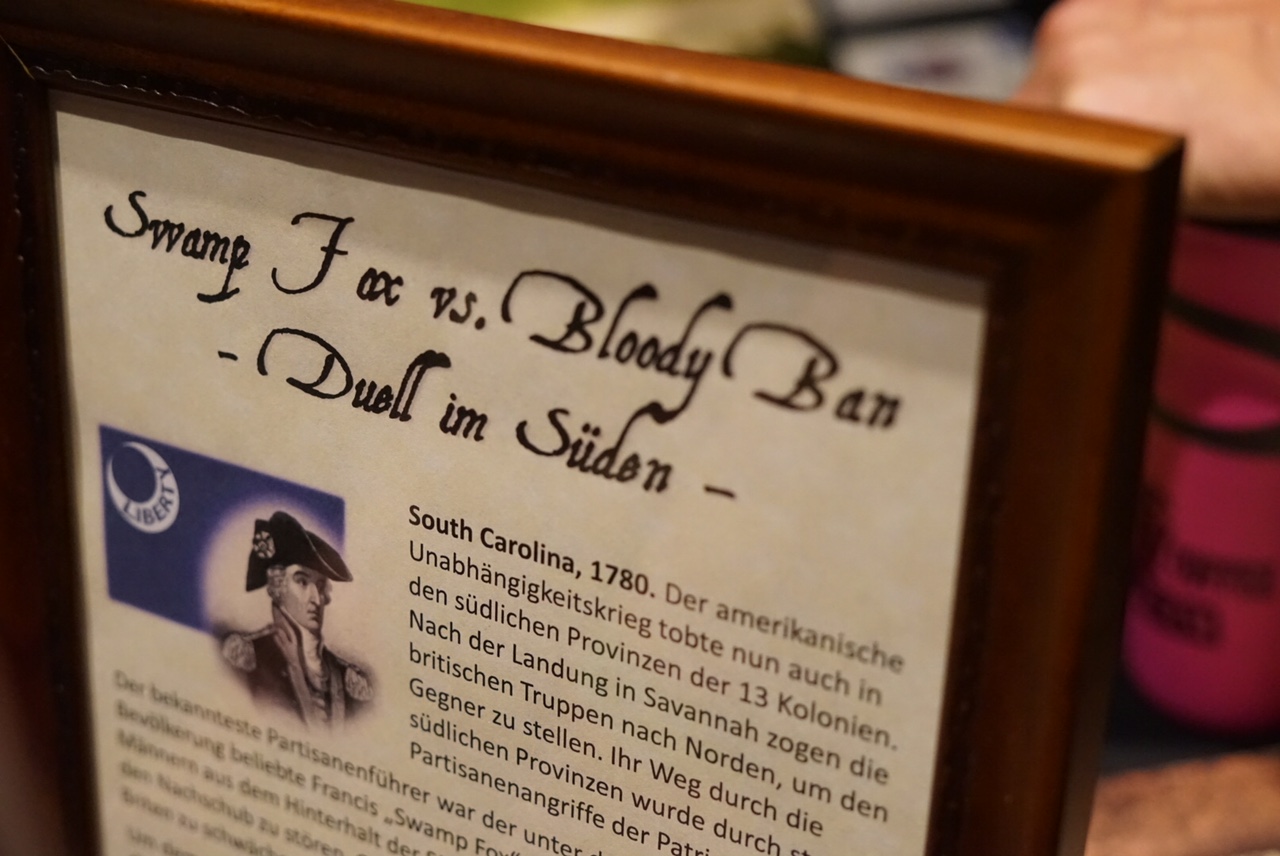 Swamp Fox vs. Bloody Ban
- Duell im Süden -
LIBERTY
South Carolina, 1780. Der amerikanische
Unabhängigkeitskrieg tobte nun auch in
den südlichen Provinzen der 13 Kolonien.
Nach der Landung in Savannah zogen die
britischen Truppen nach Norden, um den
Gegner zu stellen. Ihr Weg durch die
südlichen Provinzen wurde durch
Partisanenangriffe der
Der bekannteste Partisanenführer war der unter
Bevölkerung beliebte Francis „Swamp Fox“
Männern aus dem Hinterhalt der
den Nachschub zu stören
Briten zu
Um